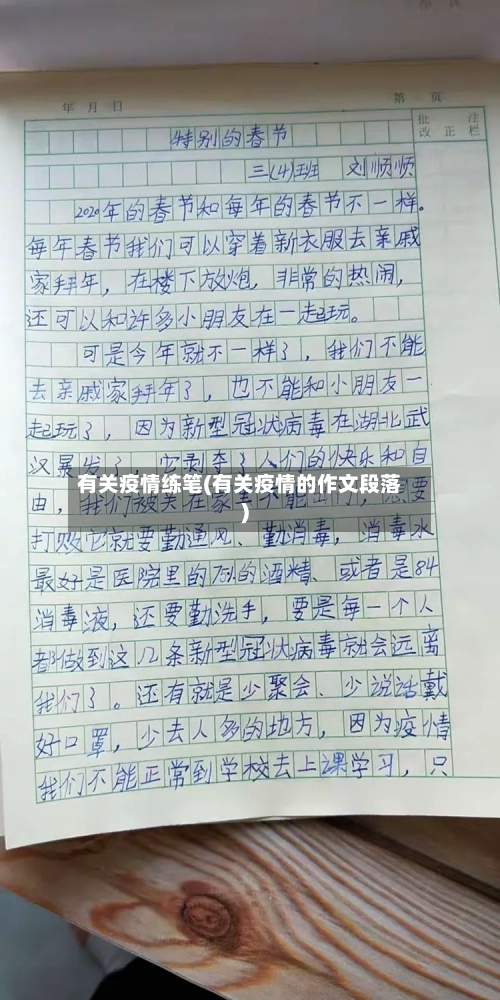 年 月 日
第 页
批 注
改 正 栏
特别的春节
三(4)班 刘顺顺
2020年的春节和每年的春节不一样。
每年春节我们可以穿着新衣服去亲戚
家拜年，在楼下放炮，非常的热闹，
还可以和许多小朋友在一起玩。
可是今年就不一样了，我们不能
去亲戚家拜年了，也不能和小朋友一
起玩了，因为新型冠状病毒在湖北武
汉暴发了，它剥夺了人们的快乐和自
由，我们被关在家里不能出门，要
有关疫情练笔(有关疫情的作文段落
)
打败它就要勤通风、勤消毒，消毒水
最好是医院里的75%的酒精、或者是84
消毒液，还要勤洗手，要是每一个人
都做到这几条新型冠状病毒就会远离
我们了。还有就是少聚会、少说话戴
好口罩，少去人多的地方，因为疫情
我们不能正常到学校去上课学习，只